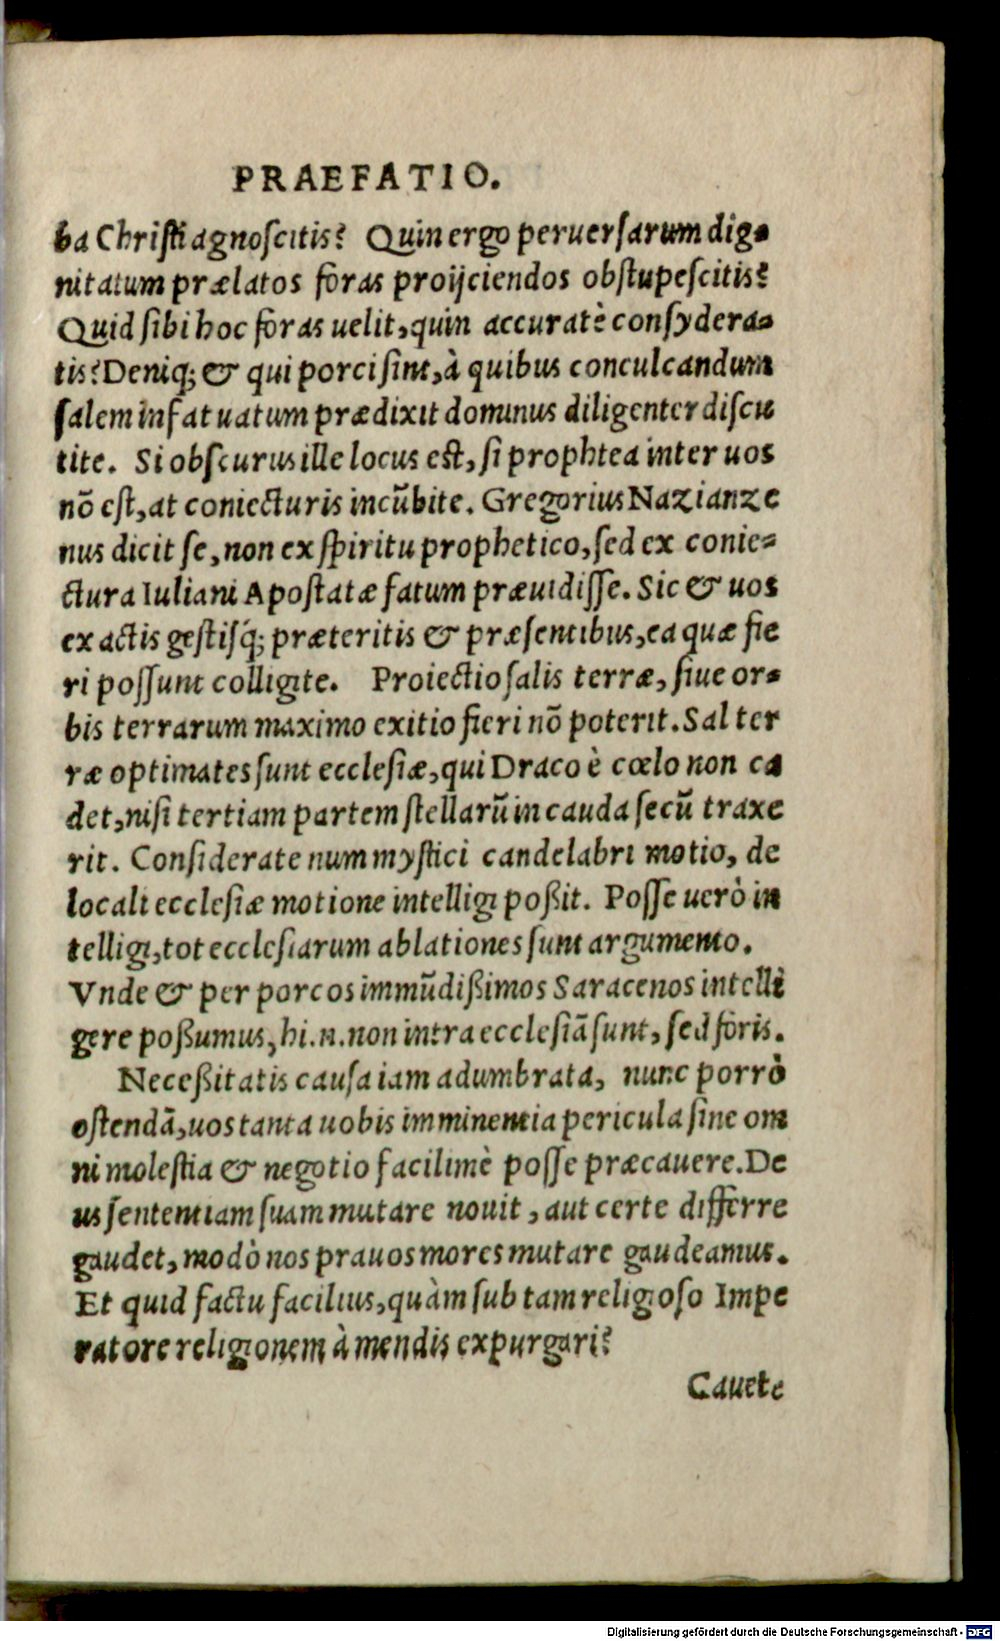 PRAEFATIO.
ba Christi agnoscitis? Quin ergo peruersarum dig-
nitatum prælatos foras proijciendos obstupescitis?
Quid sibi hoc foras uelit, quin accuratè consydera-
tis? Deniq; & qui porci sint, à quibus conculcandum
salem infatuatum prædixit dominus diligenter discu
tite. Si obscurus ille locus est, si prophtea inter uos
nõ est, at coniecturis incũbite. Gregorius Nazianze
nus dicit se, non ex spiritu prophetico, sed ex conie-
ctura Iuliani Apostatæ fatum præuidisse. Sic & uos
ex actis gestisq́; præteritis & præsentibus, ea quæ fie
ri possunt colligite. Proiectio salis terræ, siue or-
bis terrarum maximo exitio fieri nõ poterit. Sal ter
ræ optimates sunt ecclesiæ, qui Draco è cœlo non ca
det, nisi tertiam partem stellarũ in cauda secũ traxe
rit. Considerate num mystici candelabri motio, de
locali ecclesiæ motione intelligi poßit. Posse uerò in
telligi, tot ecclesiarum ablationes sunt argumento.
Vnde & per porcos immũdißimos Saracenos intelli
gere poßumus, hi .n. non intra ecclesiã sunt, sed foris.
Neceßitatis causa iam adumbrata, nunc porrò
ostendã, uos tanta uobis imminentia pericula sine om
ni molestia & negotio facilimè posse præcauere. De
us sententiam suam mutare nouit, aut certe differre
gaudet, modò nos prauos mores mutare gaudeamus.
Et quid factu facilius, quàm sub tam religioso Impe
ratore religionem à mendis expurgari?
Cauete
Digitalisierung gefördert durch die Deutsche Forschungsgemeinschaft - DFG